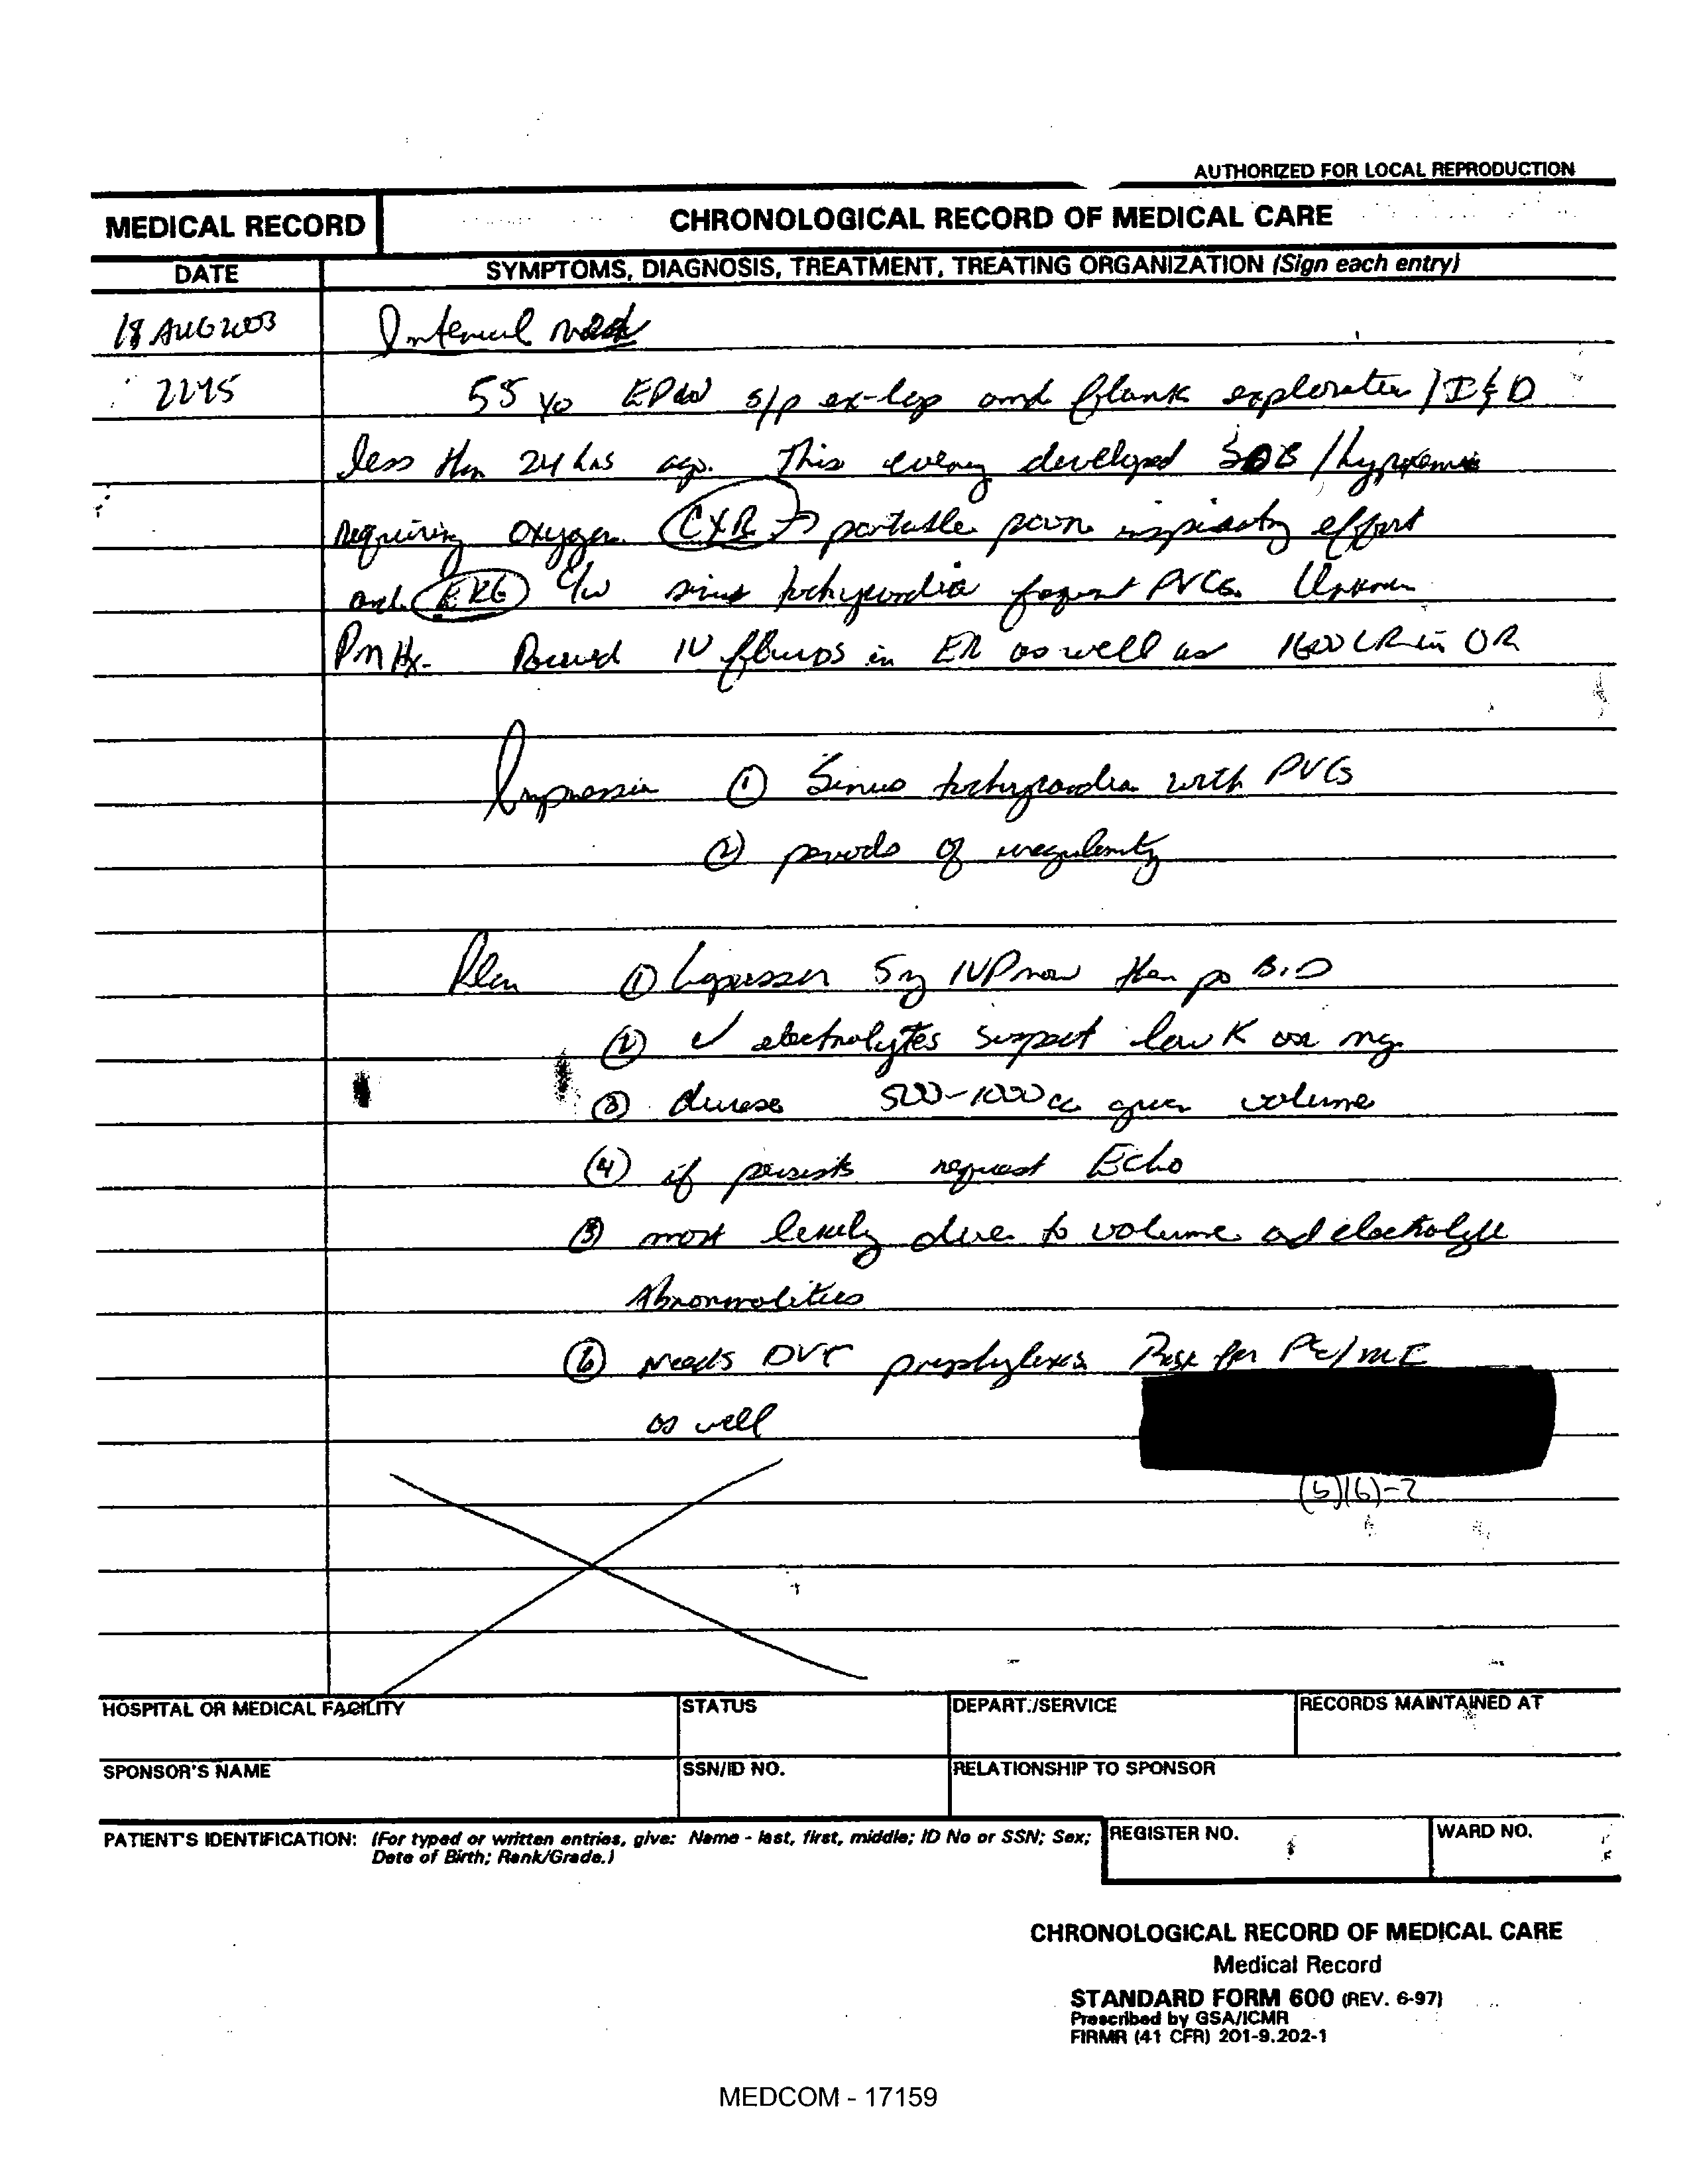 AUTHORIZED FOR LOCAL REPRODUCTION
MEDICAL RECORD CHRONOLOGICAL RECORD OF MEDICAL CARE
DATE SYMPTOMS, DIAGNOSIS, TREATMENT, TREATING ORGANIZATION (Sign each entry)
18 AUG 2003 Internal Med
55 yo EPW s/p ex-lap and flank exploration / I & D
less than 24 hrs ago. This evening developed SOB / hypoxemia
requiring oxygen. CXR → portable poor inspiratory effort
and EKG c/w sinus tachycardia frequent PVCs. Unknown
PMHx. Received IV fluids in ER as well as 1600 LR in OR
Impression ① Sinus tachycardia with PVCs
② periods of irregularity
Plan ① Lopressor 5 mg IVP now then po BID
② ✓ electrolytes suspect low K or mg
③ diurese 500-1000cc given volume
④ if persists request Echo
⑤ most likely due to volume and electrolyte
Abnormalities
⑥ needs DVT prophylaxis Risk for PE/
as well
(b)(6)-2
HOSPITAL OR MEDICAL FACILITY STATUS DEPART./SERVICE RECORDS MAINTAINED AT
SPONSOR'S NAME SSN/ID NO. RELATIONSHIP TO SPONSOR
PATIENT'S IDENTIFICATION: (For typed or written entries, give: Name - last, first, middle; ID No or SSN; Sex; REGISTER NO. WARD NO.
Date of Birth; Rank/Grade.)
CHRONOLOGICAL RECORD OF MEDICAL CARE
Medical Record
STANDARD FORM 600 (REV. 6-97)
Prescribed by GSA/ICMR
FIRMR (41 CFR) 201-9.202-1
MEDCOM - 17159